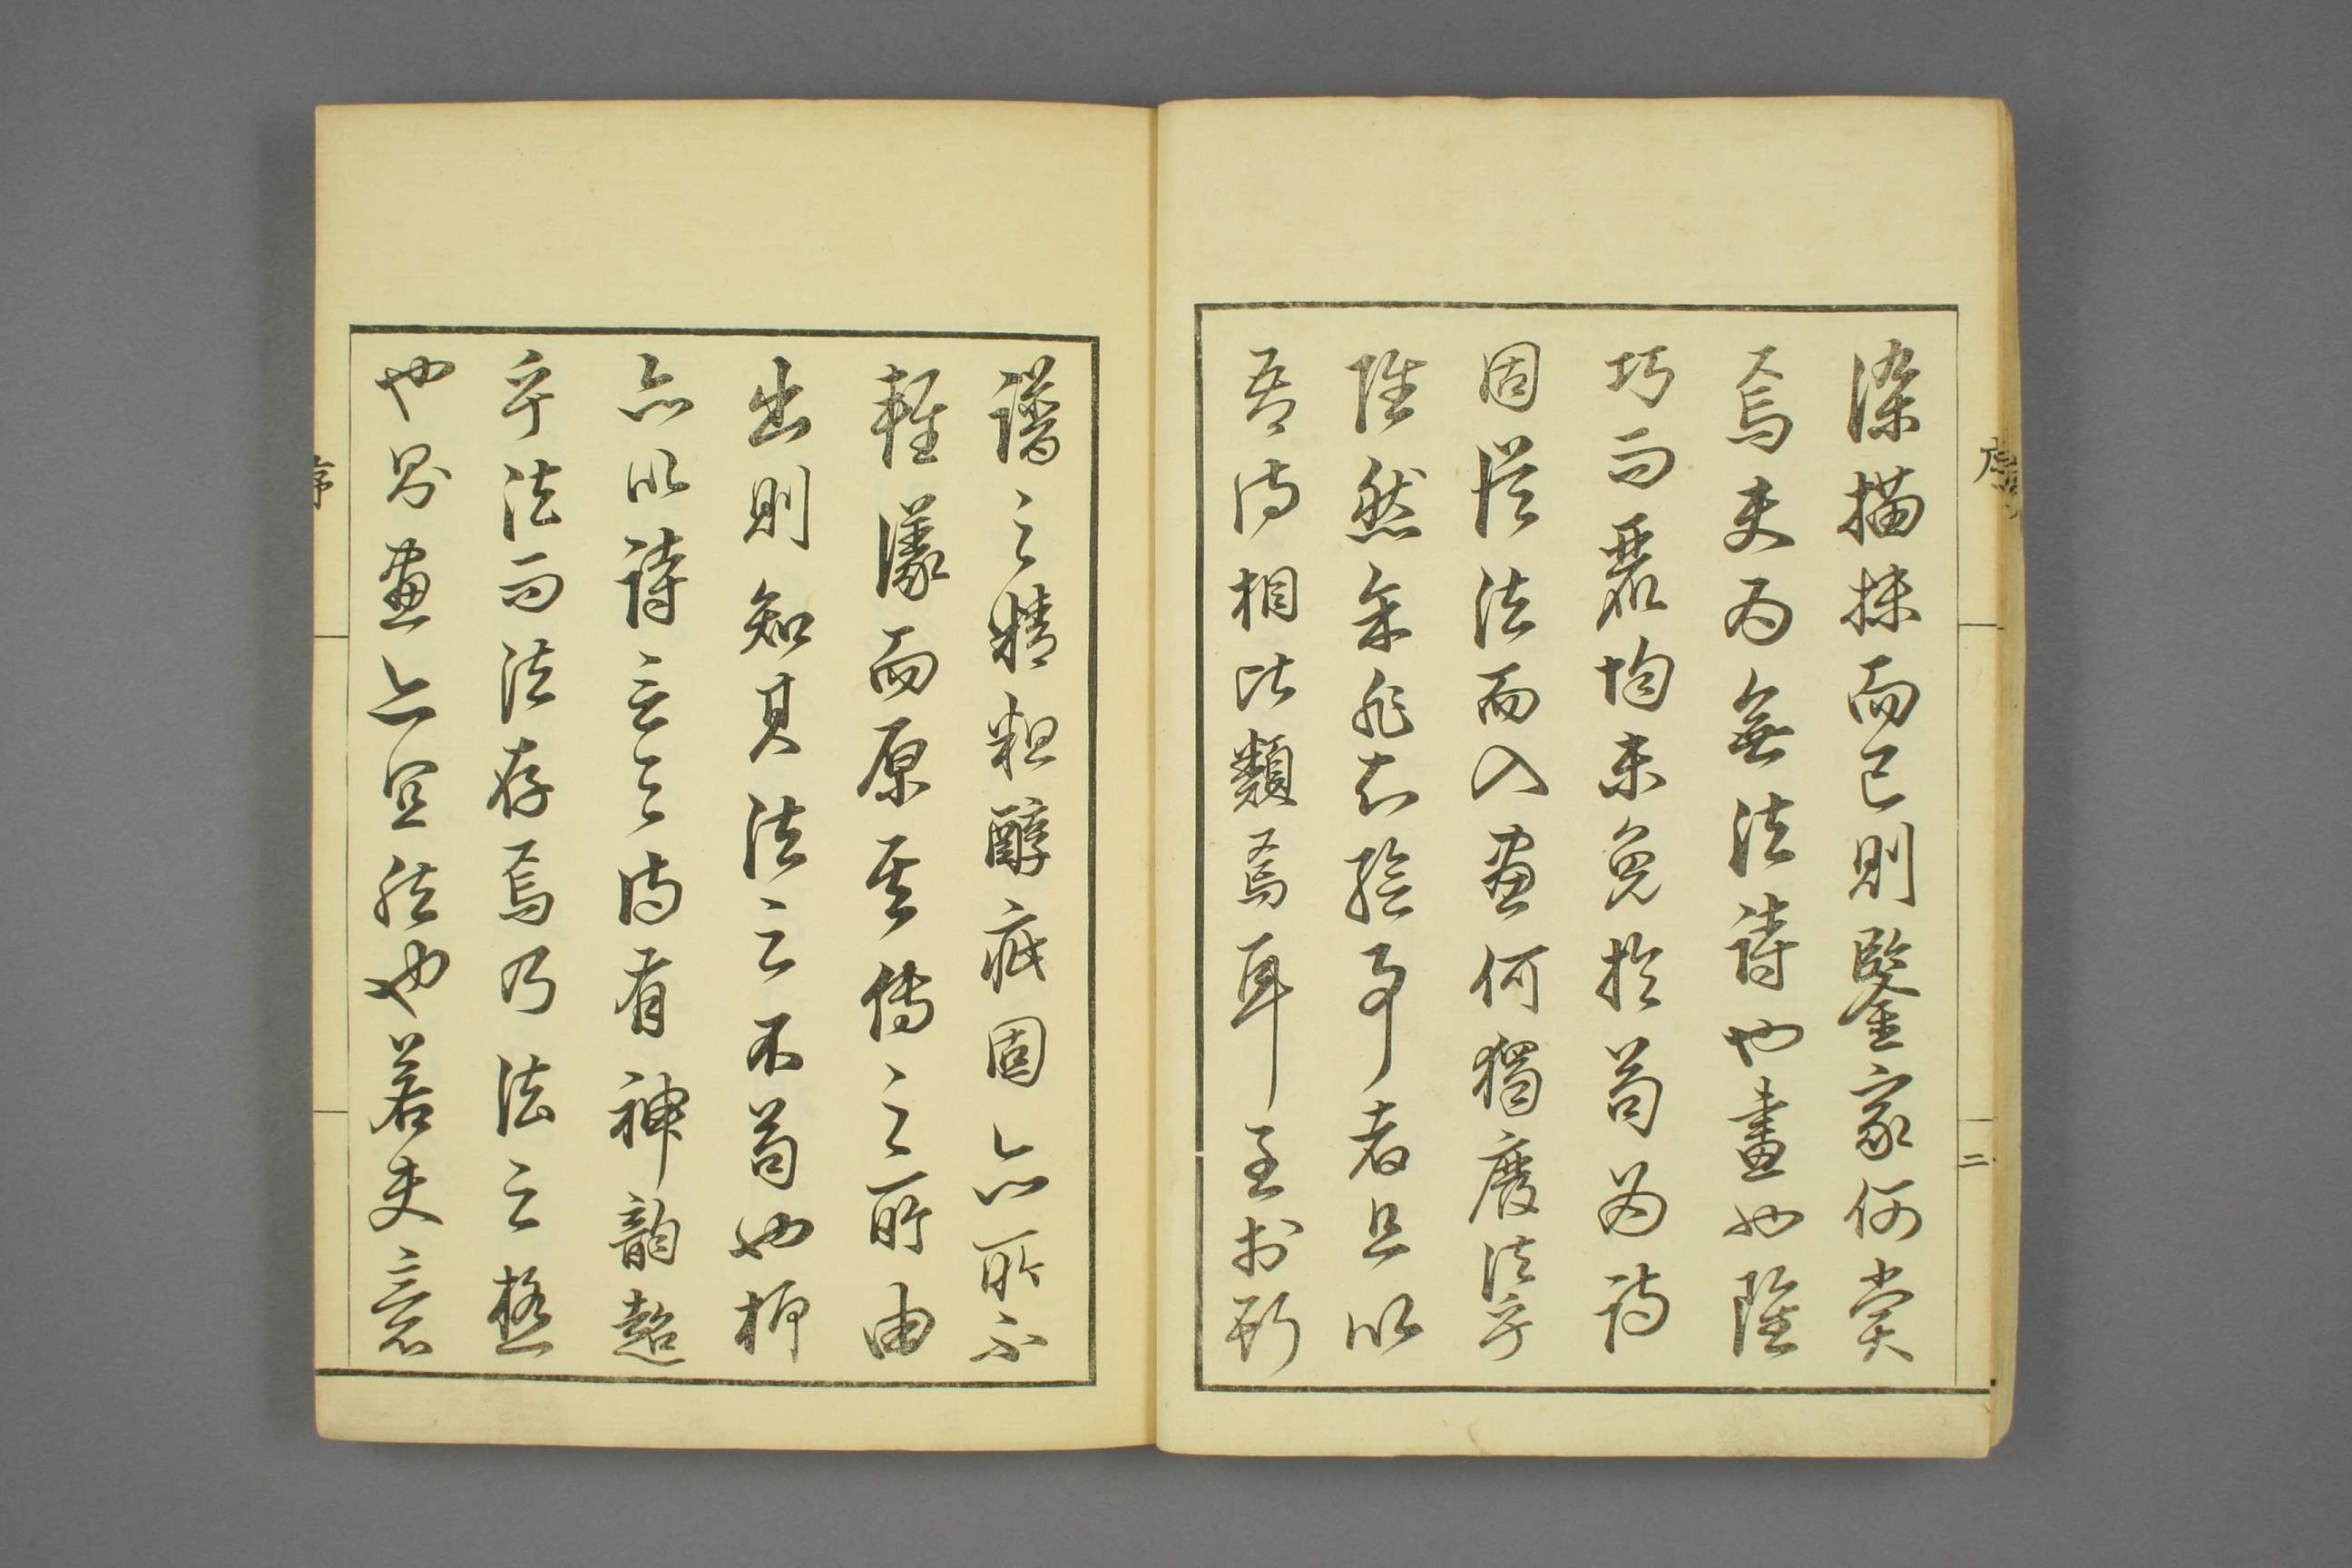 染描抹而已則鑒家何賞
焉夫為無法詩也畫也雖
巧而麗均未免於苟為詩
固從法而入畫何獨廢法乎
雖然余非知繪事者且以
吾詩相比類焉耳至於斯
譜之精粗醇疵固亦所不
輕議而原其傳之所由
出則知其法之不苟也抑
亦以詩言之詩有神韻超
乎法而法存焉乃法之極
也畫亦宜然也若夫意
序
二
序